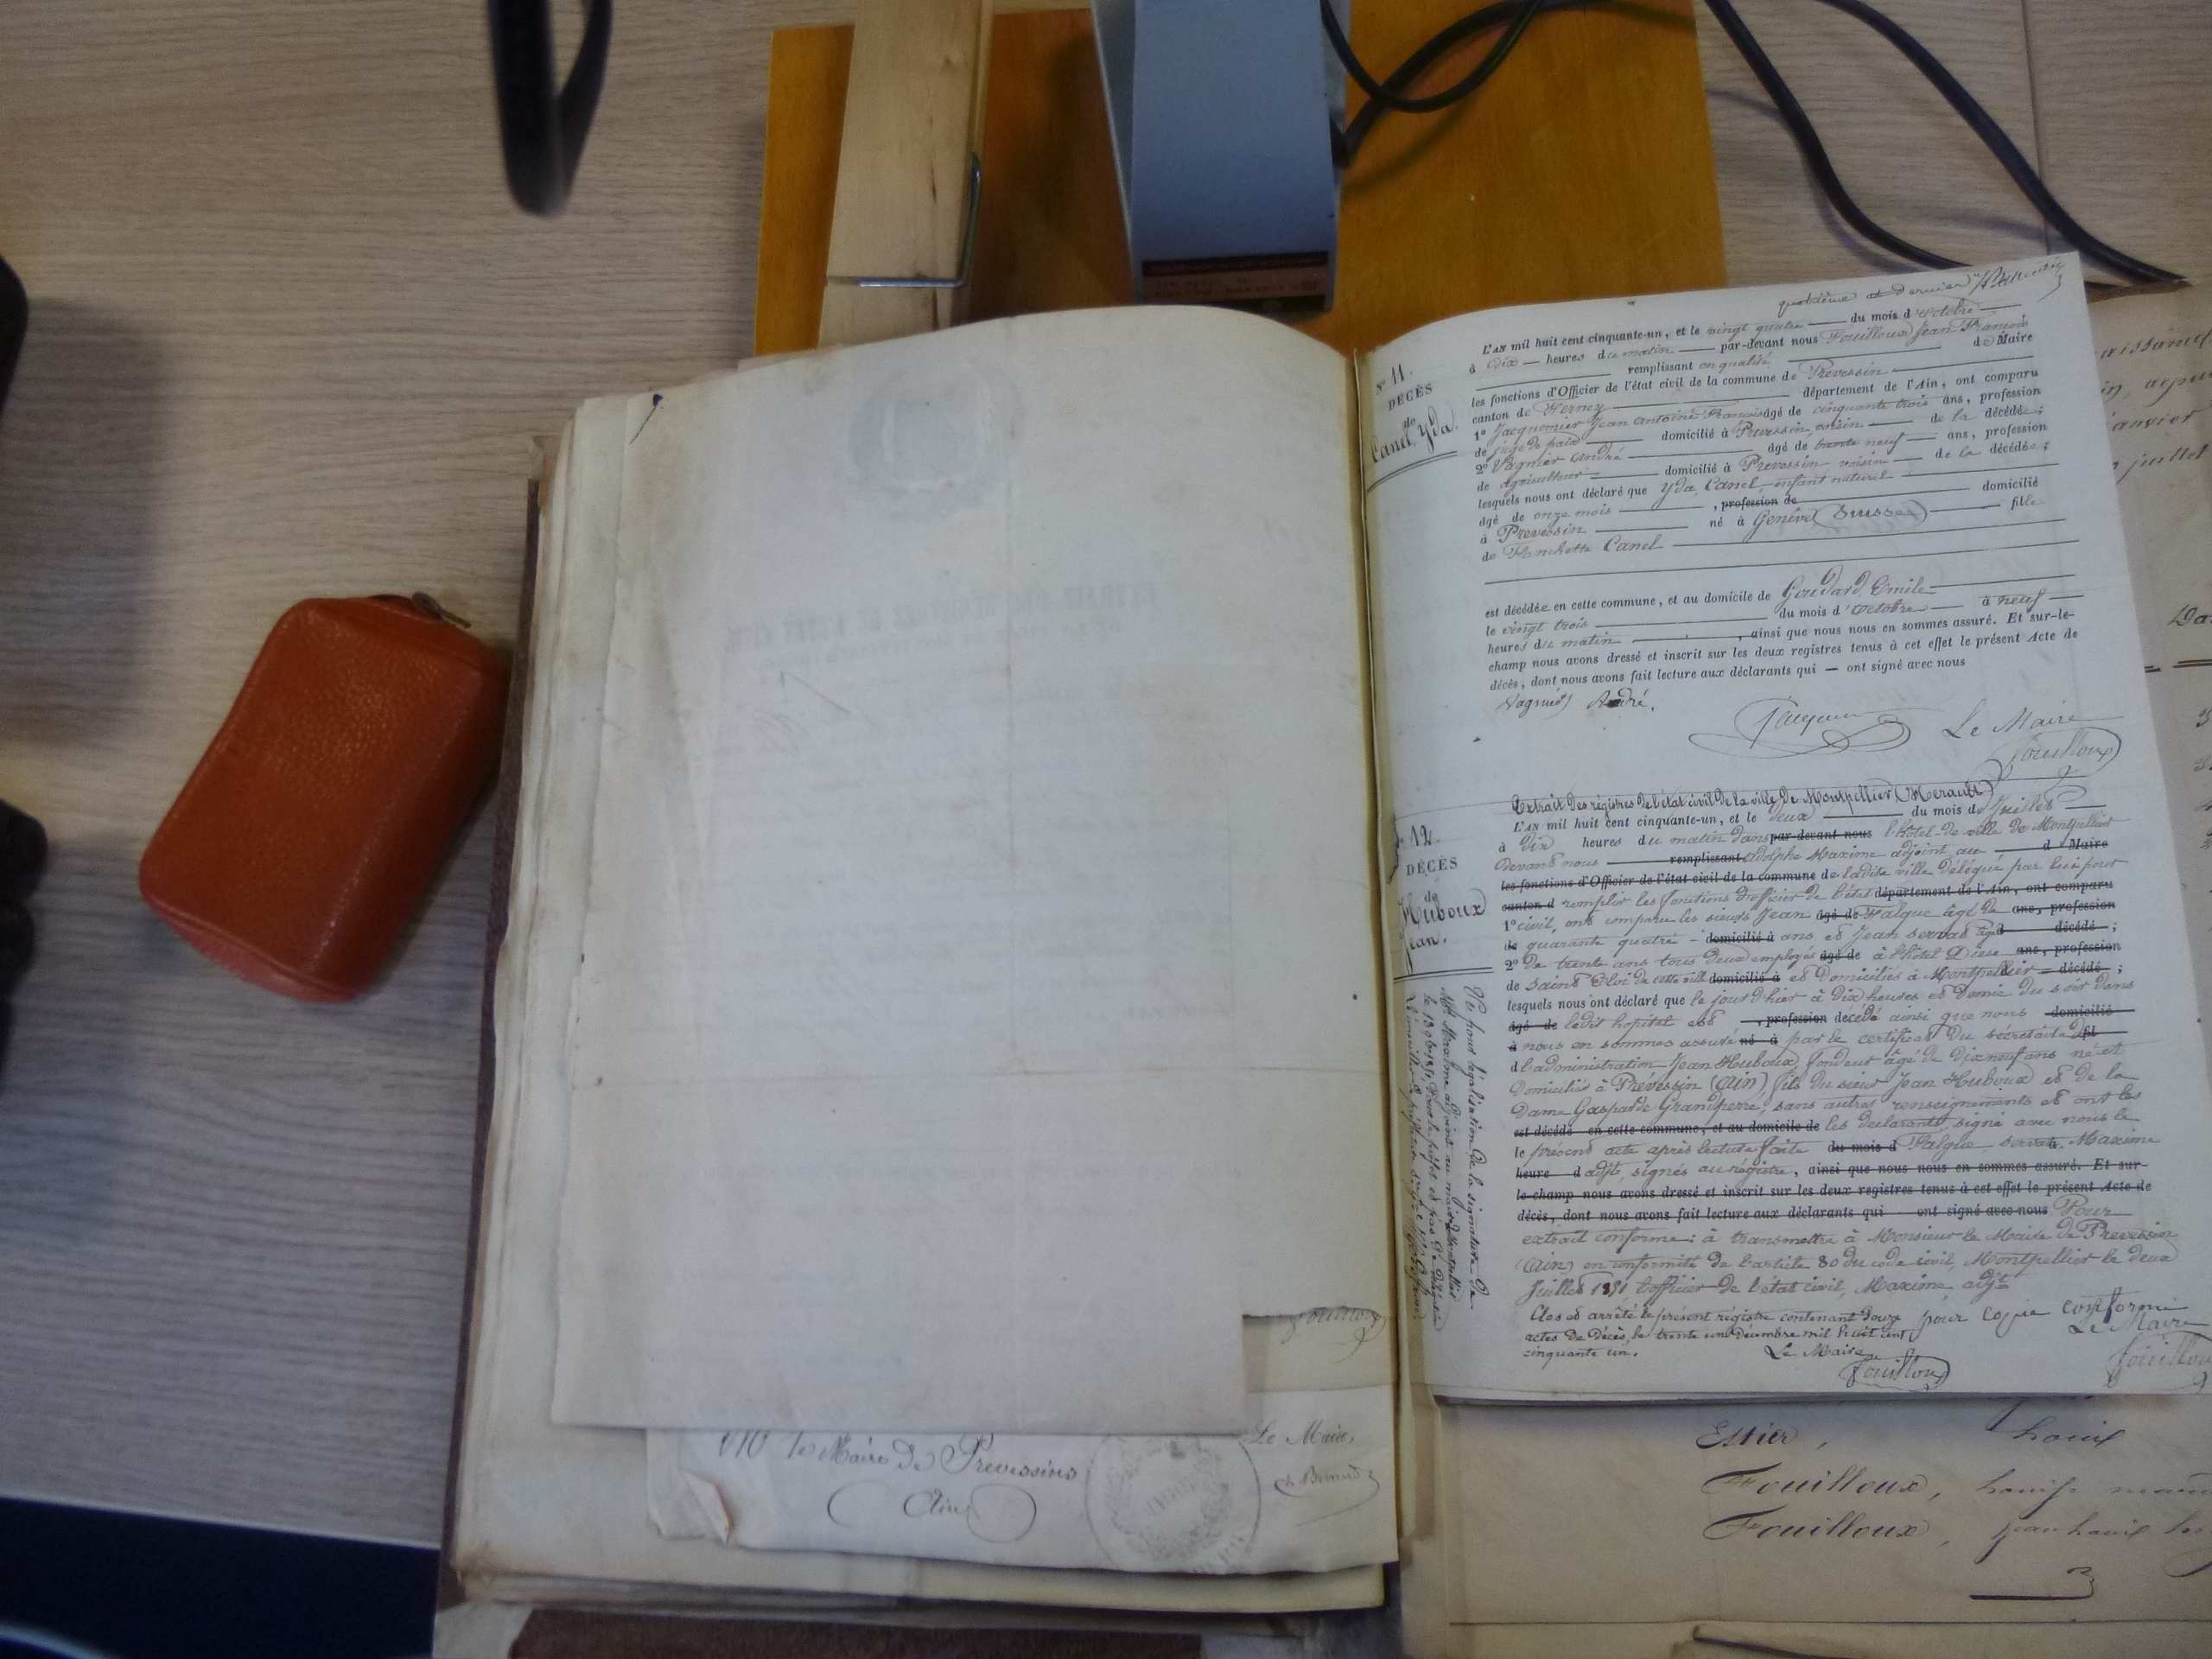 quatrième et dernier
N° 11.
DÉCÈS
de
Canel, Yda.
L'AN mil huit cent cinquante-un, et le vingt quatre du mois d'octobre
à dix heures du matin par-devant nous Fouilloux Jean François
remplissant en qualité de Maire
les fonctions d'Officier de l'état civil de la commune de Prevessin
canton de Ferney département de l'Ain, ont comparu
1° Jacquemier Jean Antoine François âgé de cinquante trois ans, profession
de juge de paix domicilié à Prevessin voisin de la décédée;
2° Vagnier André âgé de trente neuf ans, profession
de agriculteur domicilié à Prevessin voisin de la décédée;
lesquels nous ont déclaré que Yda Canel enfant naturel
âgé de onze mois, profession de domicilié
à Prevessin né à Genève (Suisse) fille
de Fanchette Canel
est décédée en cette commune, et au domicile de Goudard Emile
le vingt trois du mois d'octobre à neuf
heures du matin, ainsi que nous nous en sommes assuré. Et sur-le-
champ nous avons dressé et inscrit sur les deux registres tenus à cet effet le présent Acte de
décès, dont nous avons fait lecture aux déclarants qui — ont signé avec nous
Vagnier André.
Le Maire
Fouilloux
12.
DÉCÈS
de
Huboux
Jean.
Extrait des régistres de l'état civil de la ville de Montpellier (Herault)
L'AN mil huit cent cinquante-un, et le deux du mois de Juillet
à dix heures du matin dans par-devant nous l'hôtel-de ville de Montpellier
devant nous remplissant adolphe Maxime adjoint au d Maire
les fonctions d'Officier de l'état civil de la commune de ladite ville délégué par lui pour
canton d remplir les fonctions d'officier de l'état département de l'Ain, ont comparu
1° civil, ont comparu les sieurs Jean âgé de Falgue âgé de ans, profession
de quarante quatre domicilié à ans et Jean Servat âgé décédé;
2° de trente ans tous deux employés âgé de à l'hôtel Dieu ans, profession
de saint Eloi de cette ville domicilié à et domiciliés à Montpellier décédé;
lesquels nous ont déclaré que le jour d'hier à dix heures et demie du soir dans
âgé de ledit hopital est, profession décédé ainsi que nous domicilié
à nous en sommes assuré né à par le certificat du secrétaire de fil
de l'administration Jean Huboux fondeur âgé de dix neuf ans né et
domicilié à Prévessin (ain) fils du sieur Jean Huboux et de la
dame Gasparde Grandperré, sans autres renseignements et ont les
est décédé en cette commune, et au domicile de les déclarants signé avec nous le
le présent acte après lecture faite du mois d Falgue, Servat, Maxime
heure d adjt, signés au régistre, ainsi que nous nous en sommes assuré. Et sur-
le-champ nous avons dressé et inscrit sur les deux registres tenus à cet effet le présent Acte de
décès, dont nous avons fait lecture aux déclarants qui ont signé avec nous Pour
extrait conforme: à transmettre à Monsieur le Maire de Prevessin
(ain) en conformité de l'article 80 du code civil, Montpellier le deux
Juillet 1851 l'officier de l'état civil, Maxime adjt
pour copie conforme
Le Maire
Fouilloux
Clos et arrêté le présent régistre contenant douze
actes de décès, le trente un décembre mil huit cent
cinquante un.
Le Maire
Fouilloux
Vu pour légalisation de la signature de
Mr Maxime adjoint au maire de Montpellier
Le Maire de Prevessins
Ain
Le Maire,
Estier,
Fouilloux,
Fouilloux,
janvier
juillet